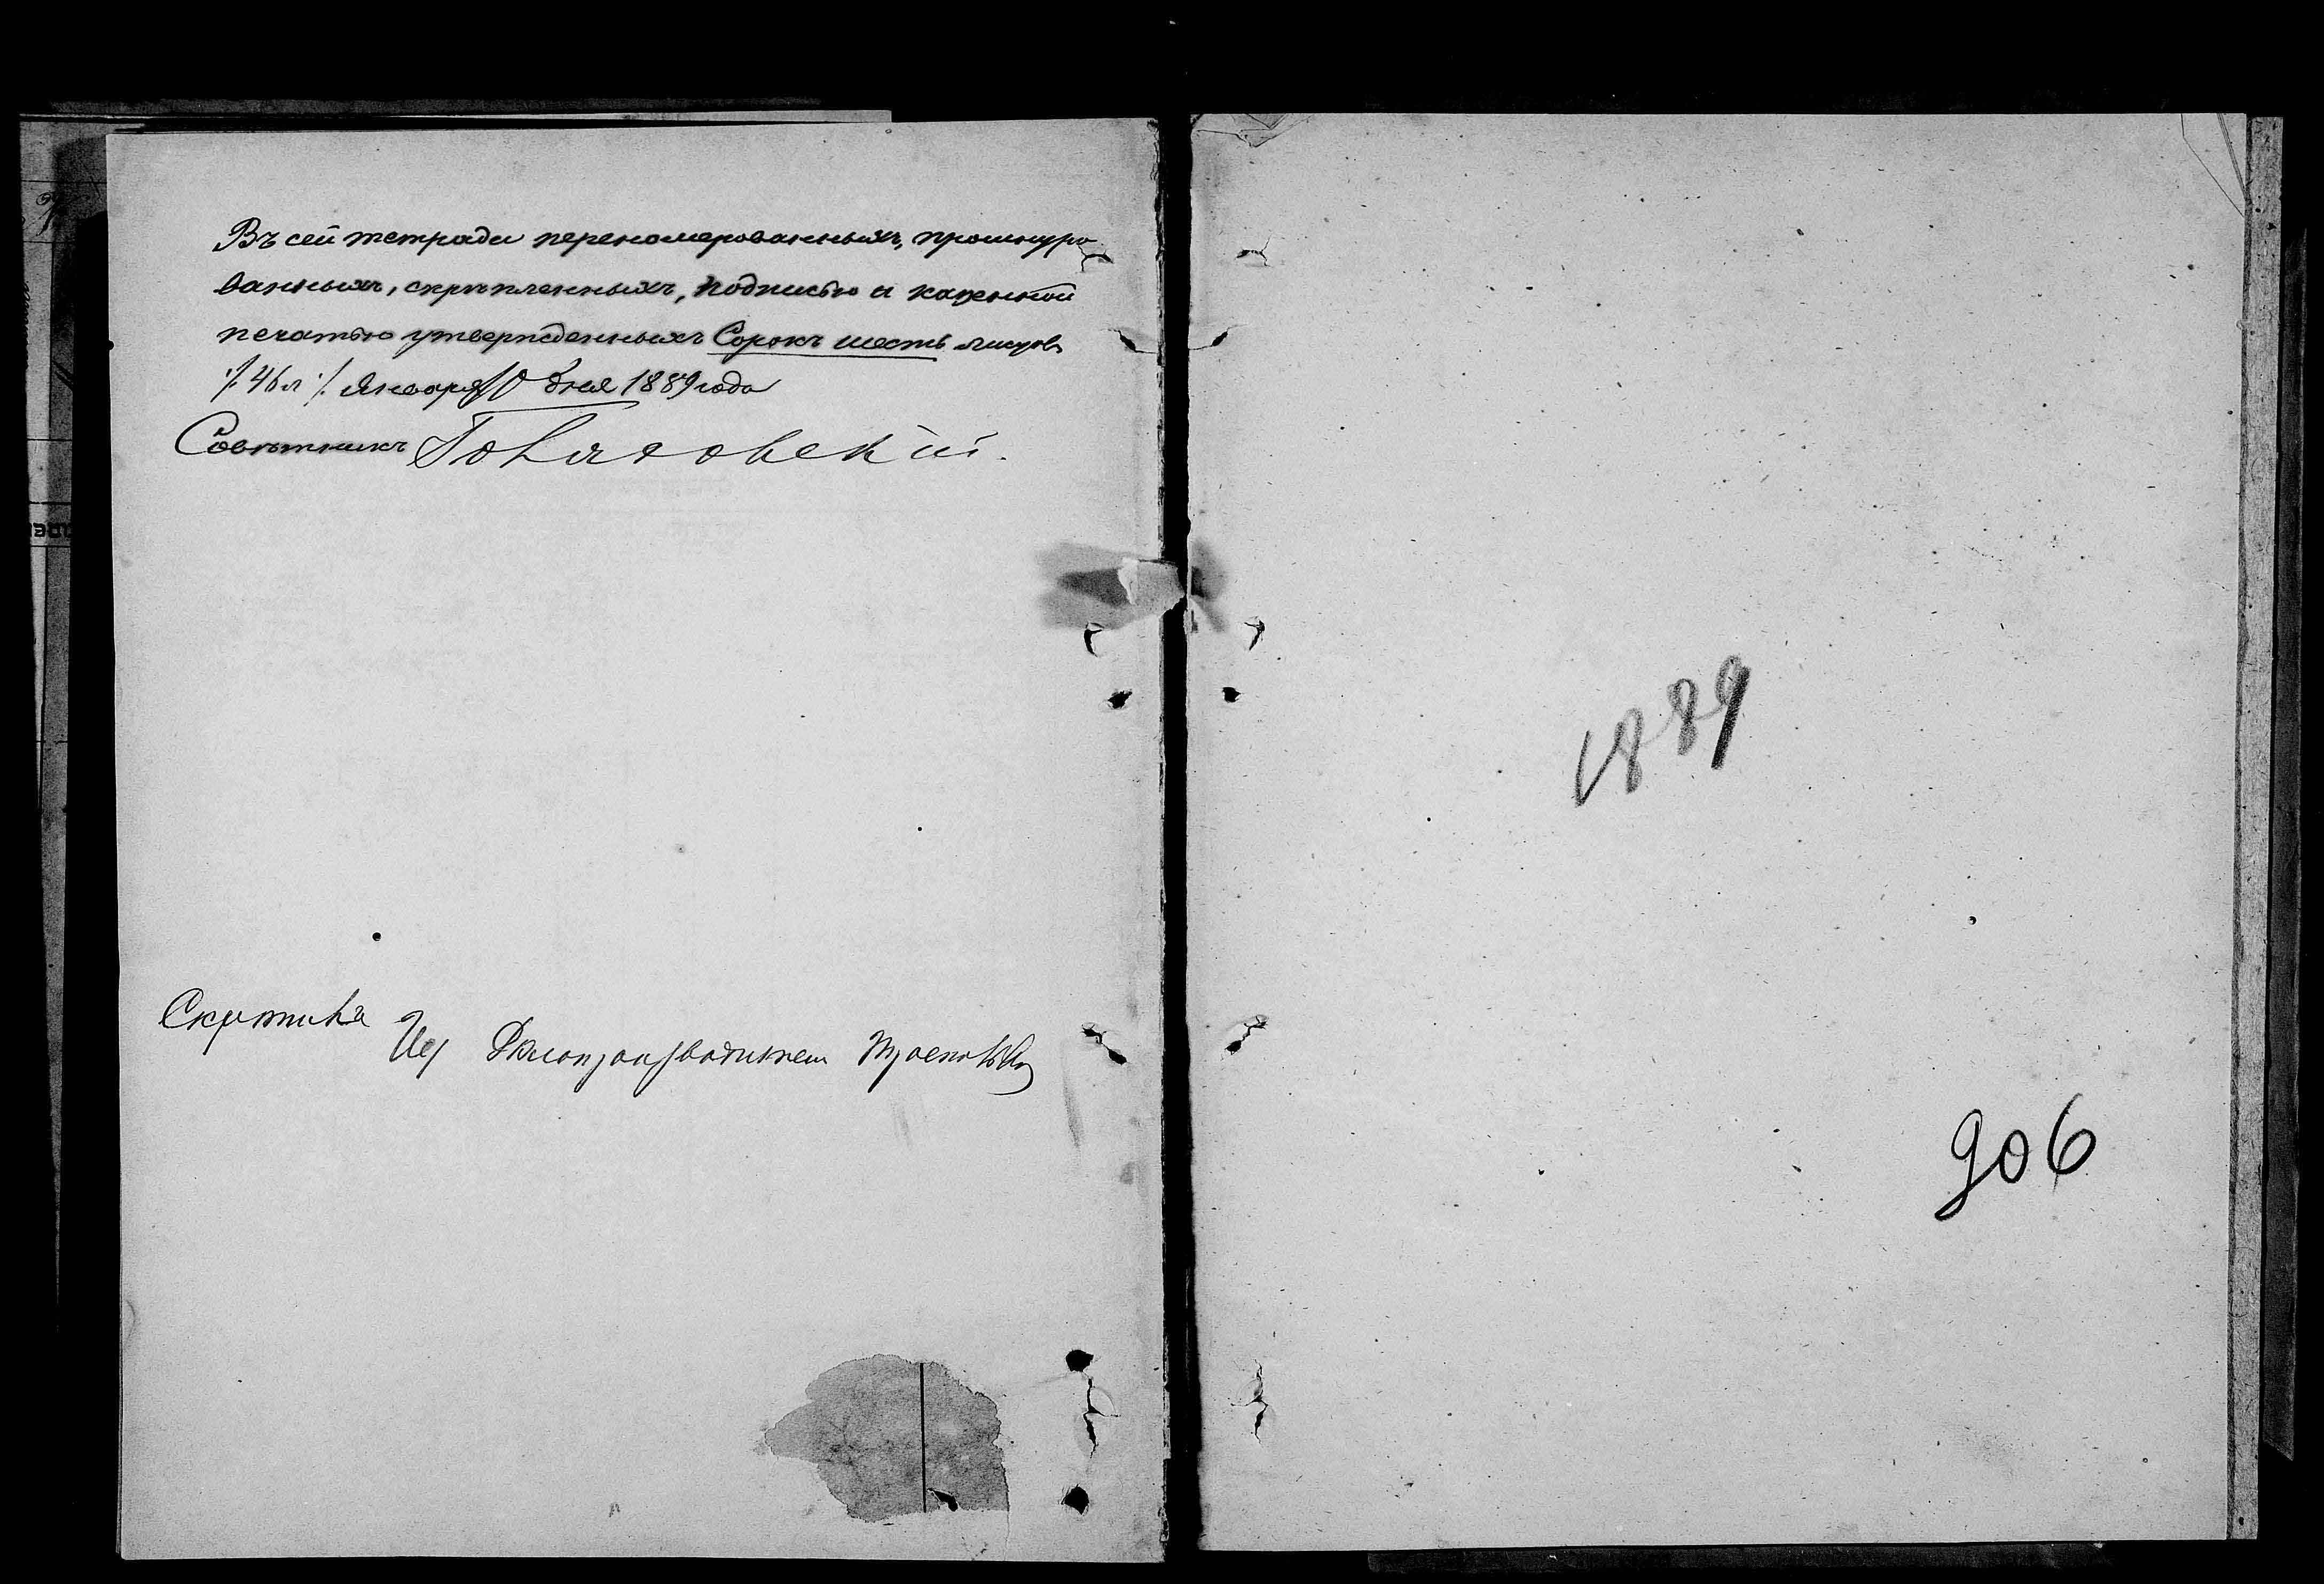 Въ сей тетради перенумерованныхъ, прошнуро
ванныхъ, скрѣпленныхъ, подписью и казенной
печатью утвержденныхъ Сорокъ шесть листовъ
·/. 46 л ·/. Января 10 дня 1889 года
Совѣтникъ
Скрѣпилъ
Дѣлопроизводителя
1889
906